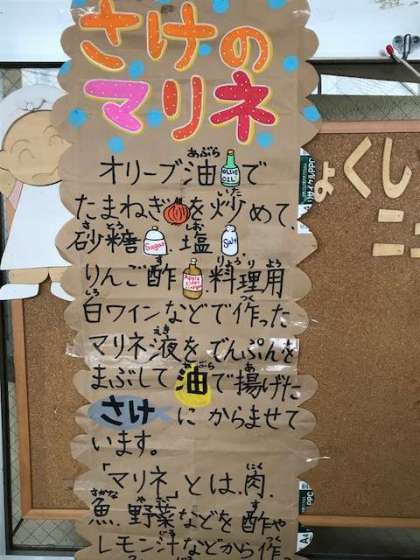 さけの
マリネ
オリーブ油で
あぶら
OLIVE OIL
たまねぎを炒めて、
いた
砂糖、塩、
さ とう しお
Sugar
Salt
りんご酢、料理用
す りょうり よう
白ワインなどで作った
しろ つく
マリネ液をでんぷんを
えき
まぶして油で揚げた
あぶら あ
さけ にからませて
います。
「マリネ」とは、肉、
にく
魚、野菜などを酢や
さかな や さい す
レモン汁などから作
じる つく
ょくし
ニ